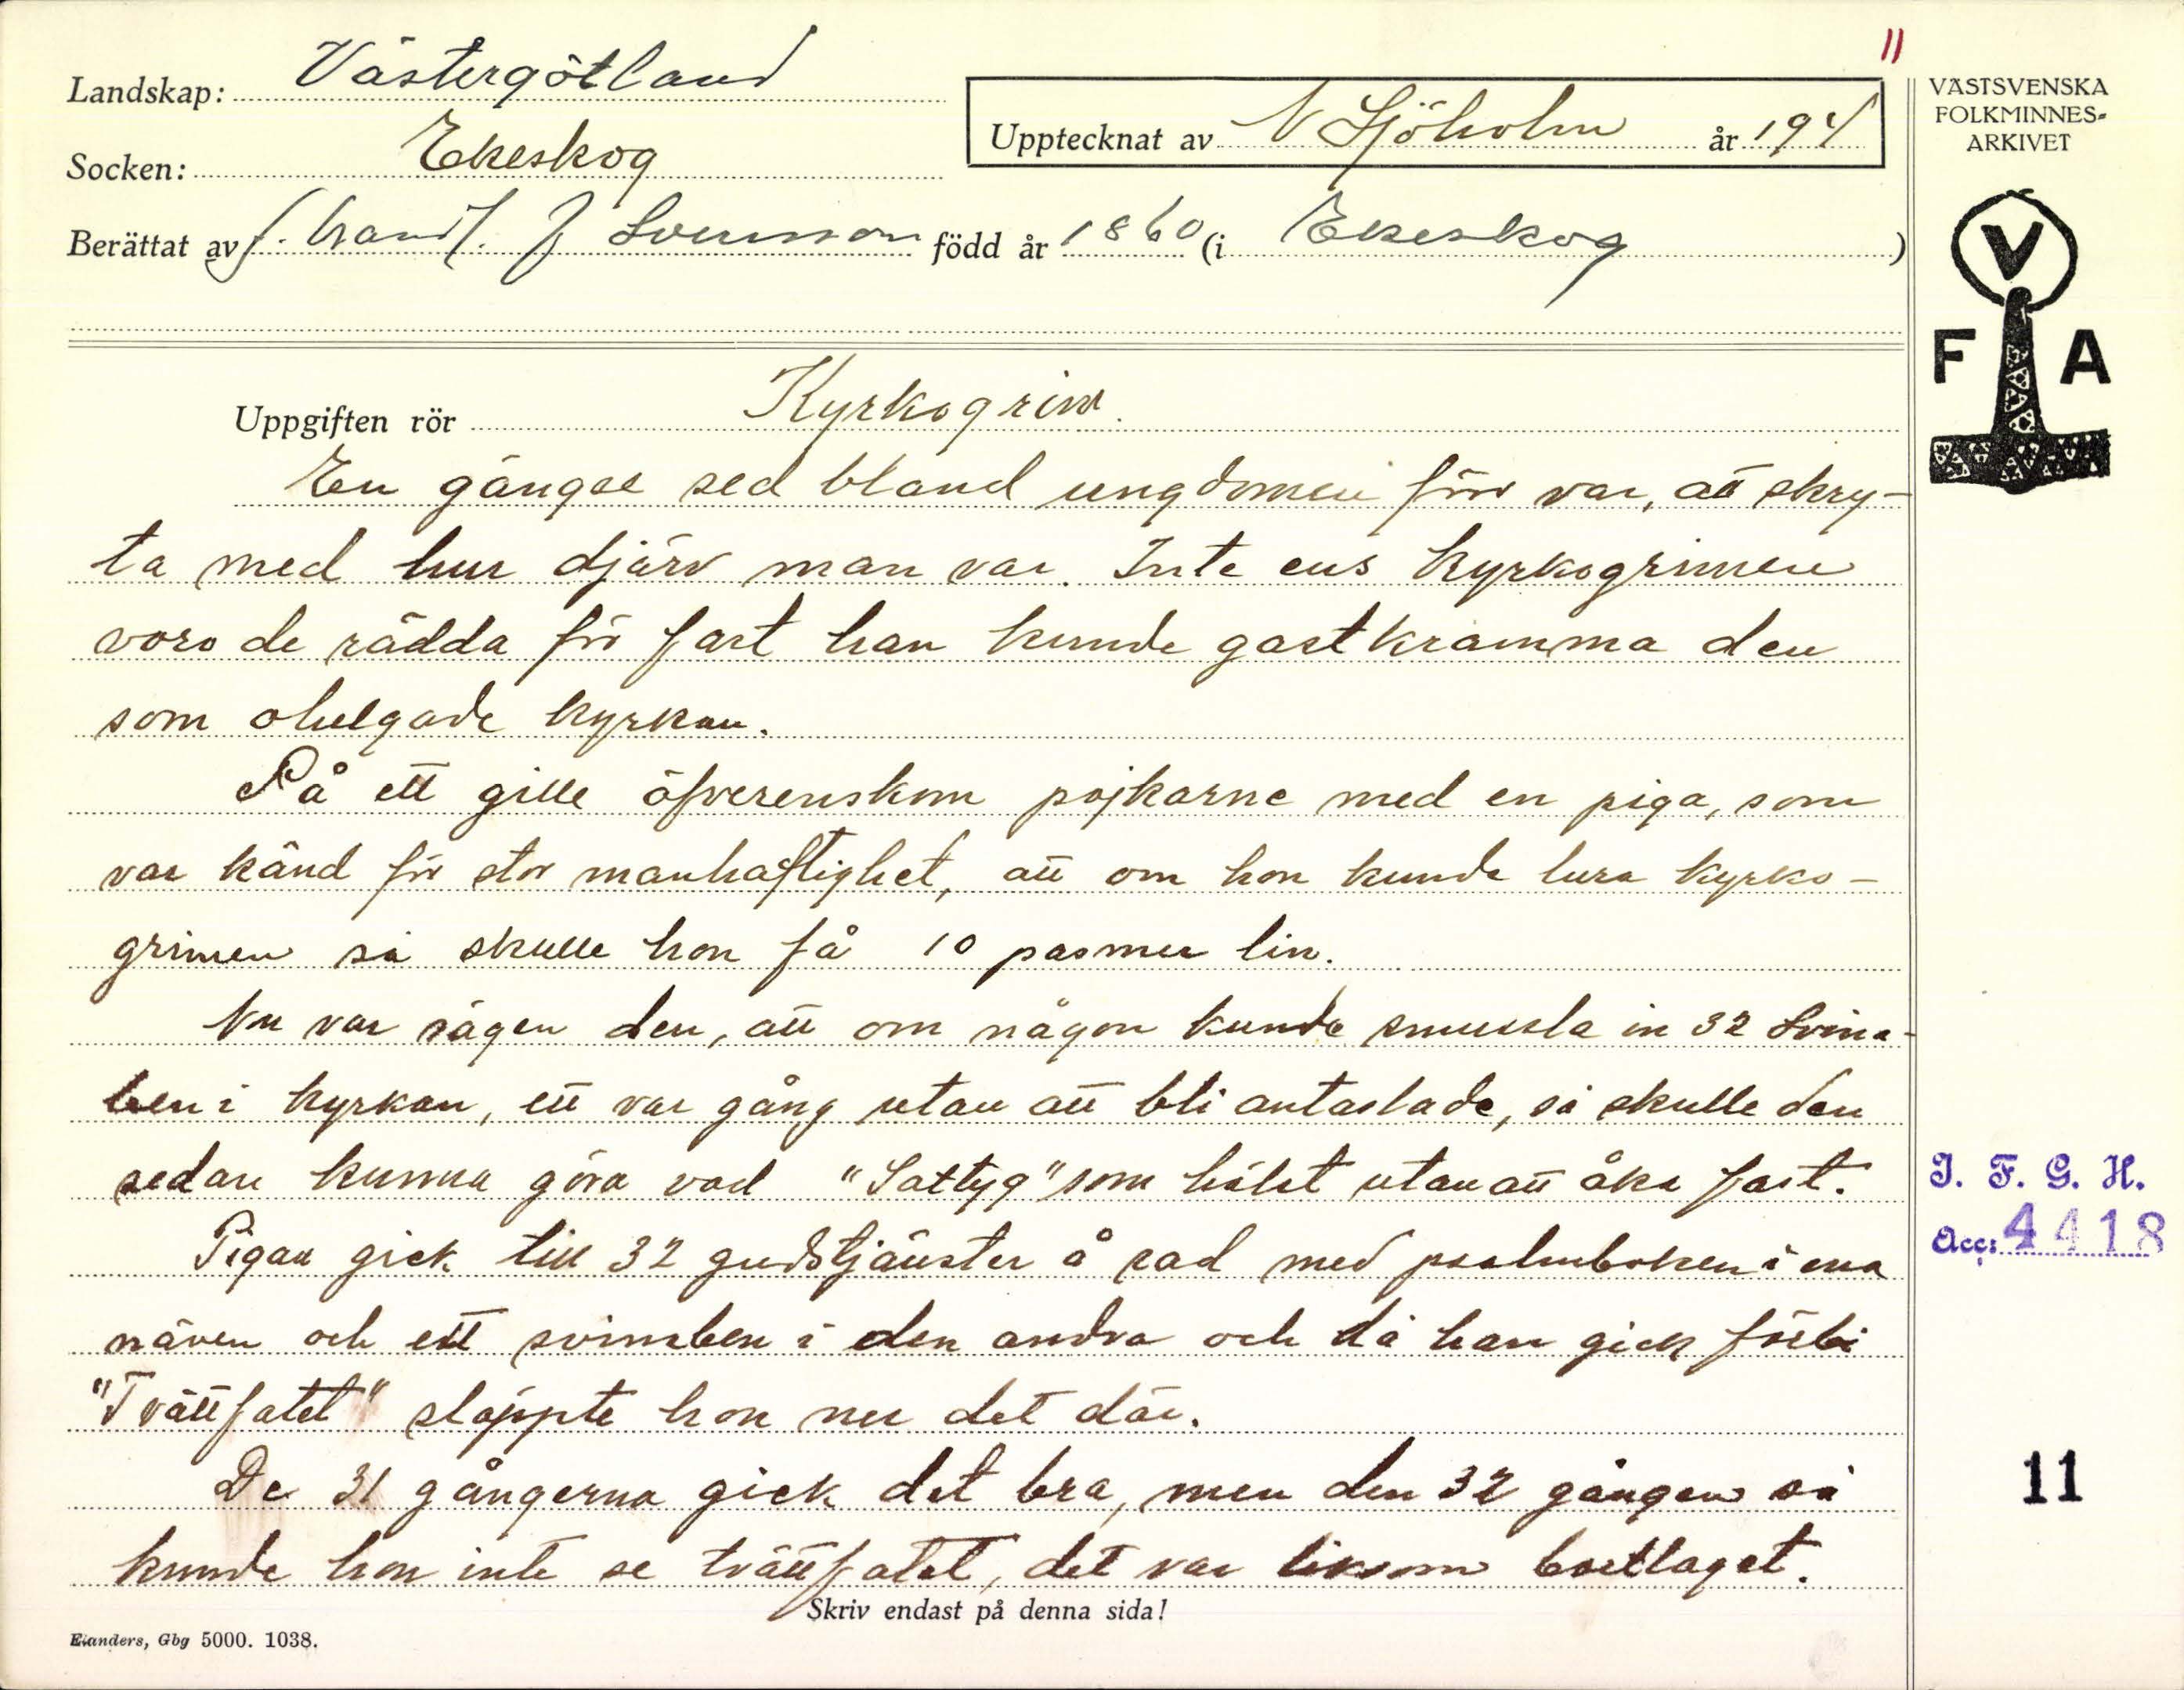 11
Landskap: Västergötland
Socken: Ekeskog
Upptecknat av N Sjöholm år 194
Berättat av f. handl. J Svensson född år 1860 (i Ekeskog)
VÄSTSVENSKA
FOLKMINNES-
ARKIVET
V
F A
Uppgiften rör Kyrkogrim.
En gängse sed bland ungdomen förr var, att skry-
ta med hur djärv man var. Inte ens kyrkogrimen
voro de rädda för fast han kunde gastkramma den
som ohelgade kyrkan.
På ett gille öfverenskom pojkarne med en piga, som
var känd för stor manhaftighet, att om hon kunde lura kyrko-
grimen så skulle hon få 10 pasmer lin.
Nu var sägen den, att om någon kunde smussla in 32 Svina-
ben i kyrkan, ett var gång utan att bli antastade, så skulle den
sedan kunna göra vad "Sattyg" som hälst utan att åka fast.
Pigan gick till 32 gudstjänster å rad med psalmboken i ena
näven och ett svinben i den andra och då han gick förbi
"Tvättfatet" släppte hon ner det där.
De 31 gångerna gick det bra, men den 32 gången så
kunde hon inte se tvättfatet, det var liksom borttaget.
Skriv endast på denna sida!
Elanders, Gbg 5000. 1038.
I. F. G. H.
Acc: 4418
11